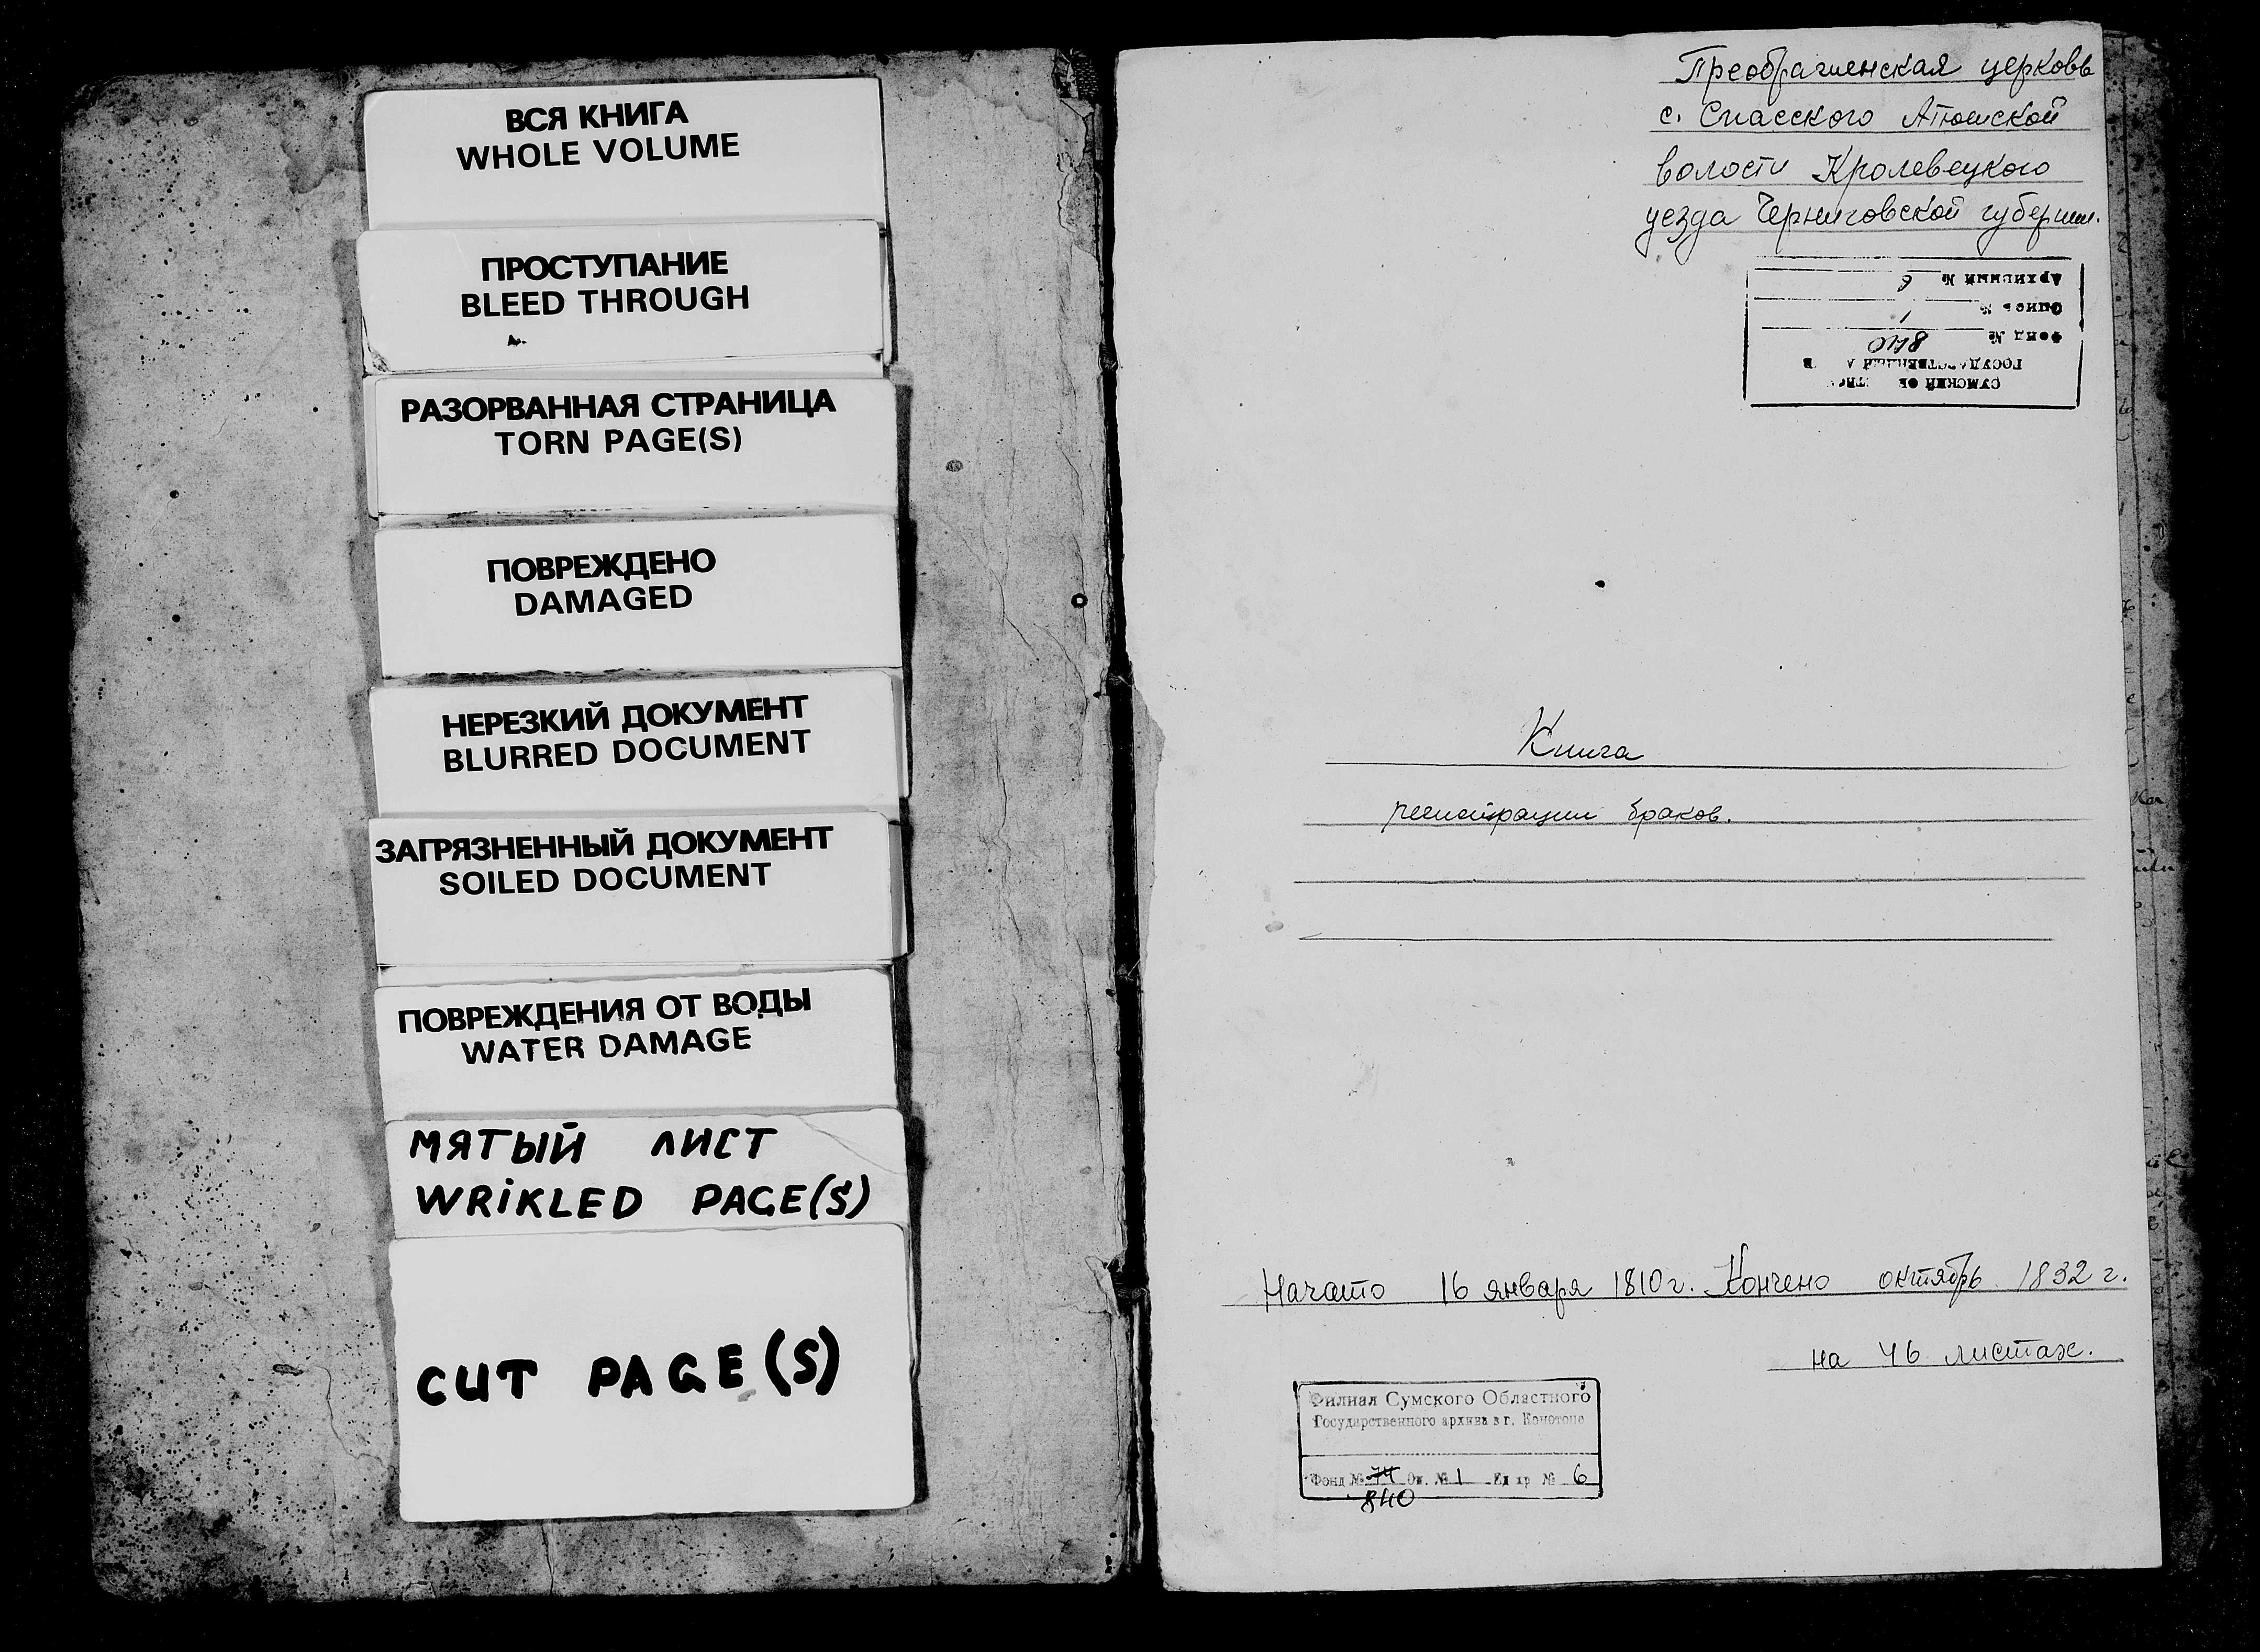 ВСЯ КНИГА
WHOLE VOLUME
ПРОСТУПАНИЕ
BLEED THROUGH
РАЗОРВАННАЯ СТРАНИЦА
TORN PAGE(S)
ПОВРЕЖДЕНО
DAMAGED
НЕРЕЗКИЙ ДОКУМЕНТ
BLURRED DOCUMENT
ЗАГРЯЗНЕННЫЙ ДОКУМЕНТ
SOILED DOCUMENT
ПОВРЕЖДЕНИЯ ОТ ВОДЫ
WATER DAMAGE
МЯТЫЙ ЛИСТ
WRIKLED PAGE(S)
CUT PAGE(S)
Преображенская церковь
с. Спасского Атюшской
волости Кролевецкого
уезда Черниговской губернии.
СУМСКИЙ
Фонд № 840
Опись № 1
Архивный № 6
Книга
регистрации браков.
Начато 16 января 1810 г. Кончено октябрь 1832 г.
на 46 листах.
Филиал Сумского Областного
Государственного архива в г. Конотопе
Фонд № 74 Оп. № 1 Ед хр № 6
840